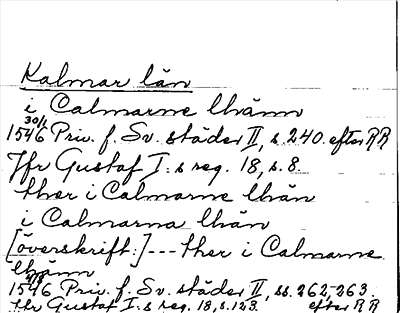 Kalmar län
i Calmarne lhänn
30/1
1546 Priv. f. Sv. städer II, s. 240. efter RR
Jfr Gustaf I:s reg. 18, s. 8.
ther i Calmarne lhän
i Calmarna lhän
[överskrift:]---ther i Calmarne
lhänn
1546 Priv. f. Sv. städer II, ss. 262, 263.
Jfr Gustaf I:s reg. 18, s. 123. efter RR